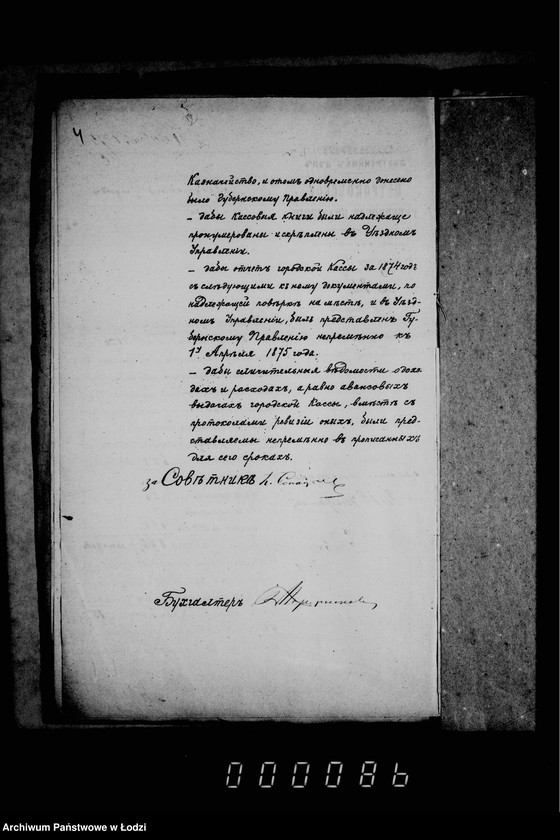 4
Казначейство, и о томъ одновременно донесено
было Губернскому Правленію.
– дабы Кассовыя книги были надлежаще
пронумерованы и скрѣплены въ Уѣздномъ
Управленіи.
– дабы отчетъ городской Кассы за 1874 годъ
съ слѣдующими къ нему документами, по
надлежащей повѣркѣ на мѣстѣ, и въ Уѣзд-
номъ Управленіи, былъ представленъ Гу-
бернскому Правленію непремѣнно къ
1му Апрѣля 1875 года.
– дабы сличительныя вѣдомости о дохо-
дахъ и расходахъ, а равно авансовыхъ
выдачахъ городской Кассы, вмѣстѣ съ
протоколами ревизіи оныхъ, были пред-
ставляемы непремѣнно въ прописанныхъ
для сего срокахъ.
за Совѣтникъ
Бухгалтеръ
000086
Archiwum Państwowe w Łodzi